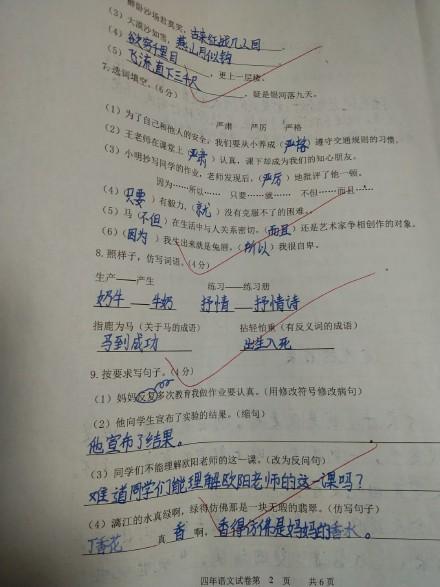 醉卧沙场君莫笑，古来征战几人回
(3) 大漠沙如雪，燕山月似钩
(4) 欲穷千里目，更上一层楼。
(5) 飞流直下三千尺，疑是银河落九天。
7、选词填空。(6分)
严肃 严厉 严格
(1) 为了自己和他人的安全，我们要从小养成(严格)遵守交通规则的习惯。
(2) 王老师在课堂上(严肃)认真，课下却成为我们的知心朋友。
(3) 小明抄写同学的作业，老师发现后，(严厉)地批评了他一顿。
因为……所以…… 只要……就…… 不但……而且……
(4) (只要)有毅力，(就)没有克服不了的困难。
(5) 马(不但)在生活中与人关系密切，(而且)还是艺术家争相创作的对象。
(6) (因为)我生出来就是兔唇，(所以)我很自卑。
8. 照样子，仿写词语。(4分)
生产——产生 练习——练习册
奶牛——牛奶 抒情——抒情诗
指鹿为马（关于马的成语） 拈轻怕重（有反义词的成语）
马到成功 出生入死
9. 按要求写句子。(4分)
(1) 妈妈反复多次教育我做作业要认真。（用修改符号修改病句）
(2) 他向学生宣布了实验的结果。（缩句）
他宣布了结果。
(3) 同学们不能理解欧阳老师的这一课。（改为反问句）
难道同学们能理解欧阳老师的这一课吗？
(4) 漓江的水真绿啊，绿得仿佛那是一块无瑕的翡翠。（仿写句子）
丁香花 真 香 啊，香得仿佛是妈妈的香水。
四年语文试卷第 2 页 共6页